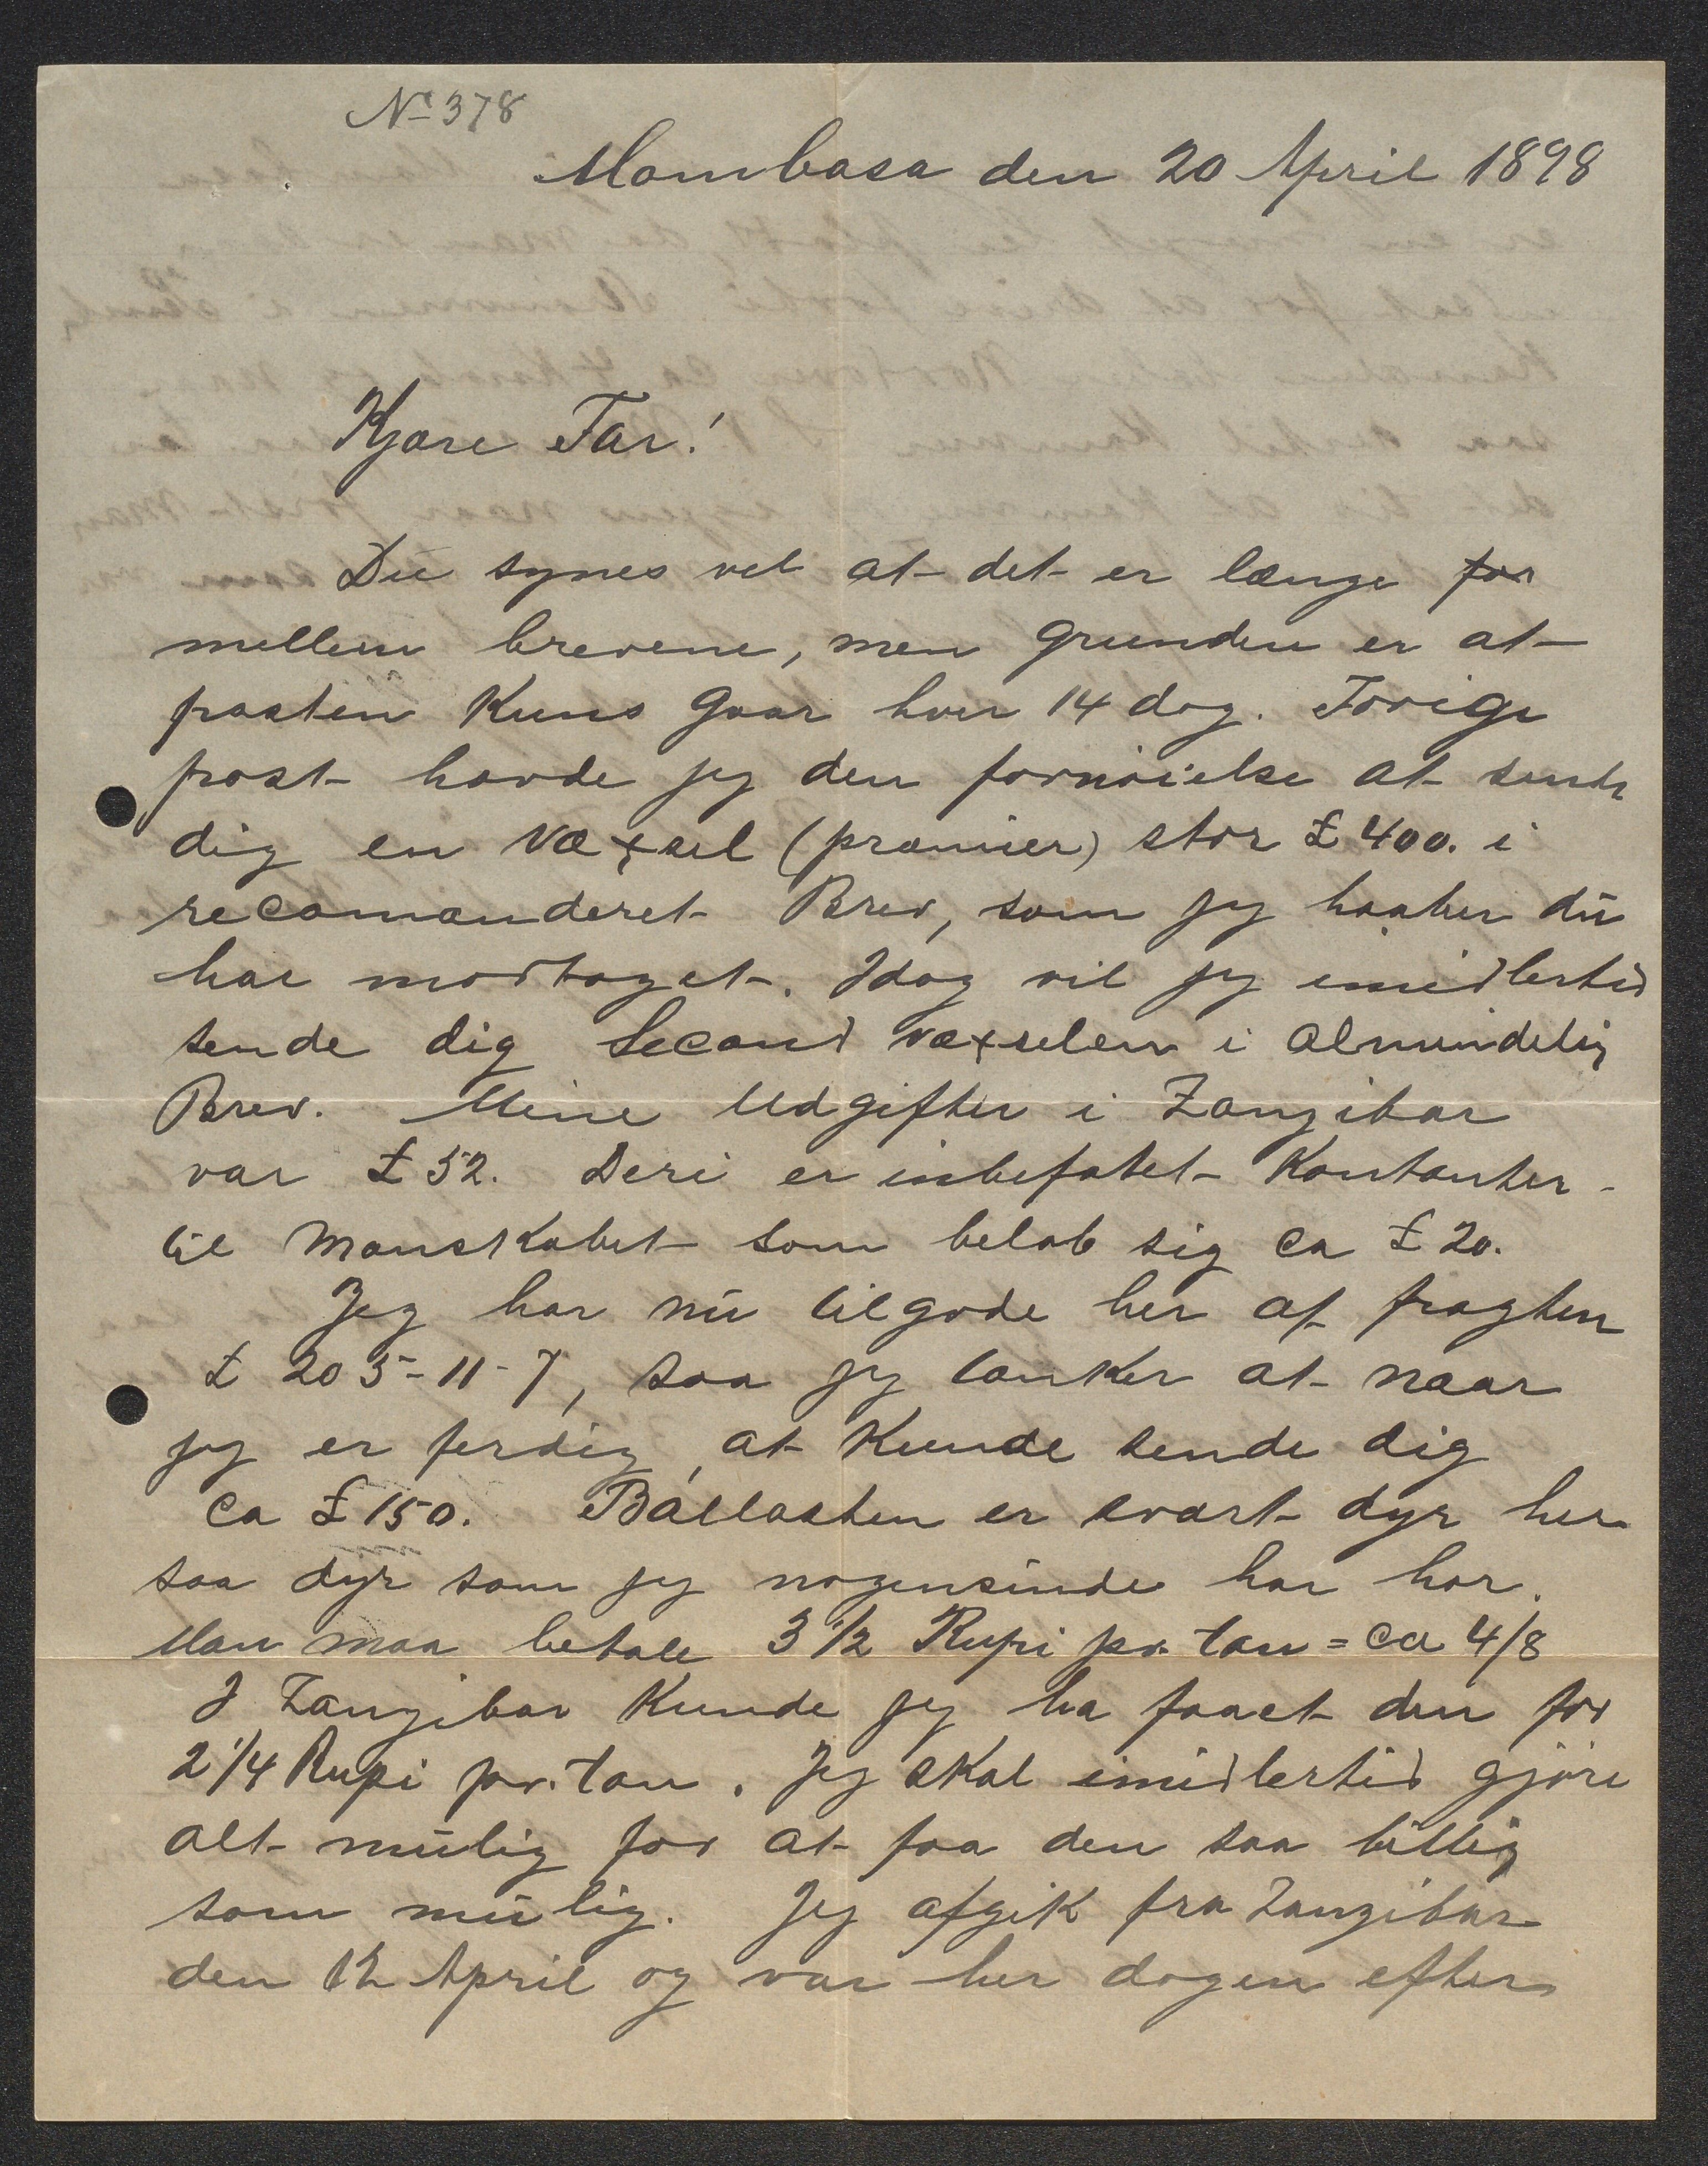 No 378
Mombasa den 20 April 1898
Kjære Far!
Du synes vel at det er længe for
mellem brevene, men grunden er at
posten kuns gaar hver 14 dag. Forige
post havde jeg den fornöielse at sende
dig en væxsel (premier) stor £ 400. i
recomanderet Brev, som jeg haaber du
har modtaget. Idag vil jeg imidlertid
sende dig Second væxselen i almindelig
Brev. Mine Udgifter i Zanzibar
var £ 52. Deri er inbefatet Kontanter
til Manskabet som beløb sig ca £ 20.
Jeg har nu tilgode her af fragten
£ 205-11-7, saa jeg tænker at naar
jeg er ferdig, at kunde sende dig
ca £ 150. Ballasten er svært dyr her
saa dyr som jeg nogensinde har hør.
Man maa betale 3 1/2 Rupi pr. ton = ca 4/8
I Zanzibar kunde jeg ha faaet den for
2 1/4 Rupi pr. ton. Jeg skal imidlertid gjöre
alt mulig for at faa den saa billig
som mulig. Jeg afgik fra Zanzibar
den 12 April og var her dagen efter